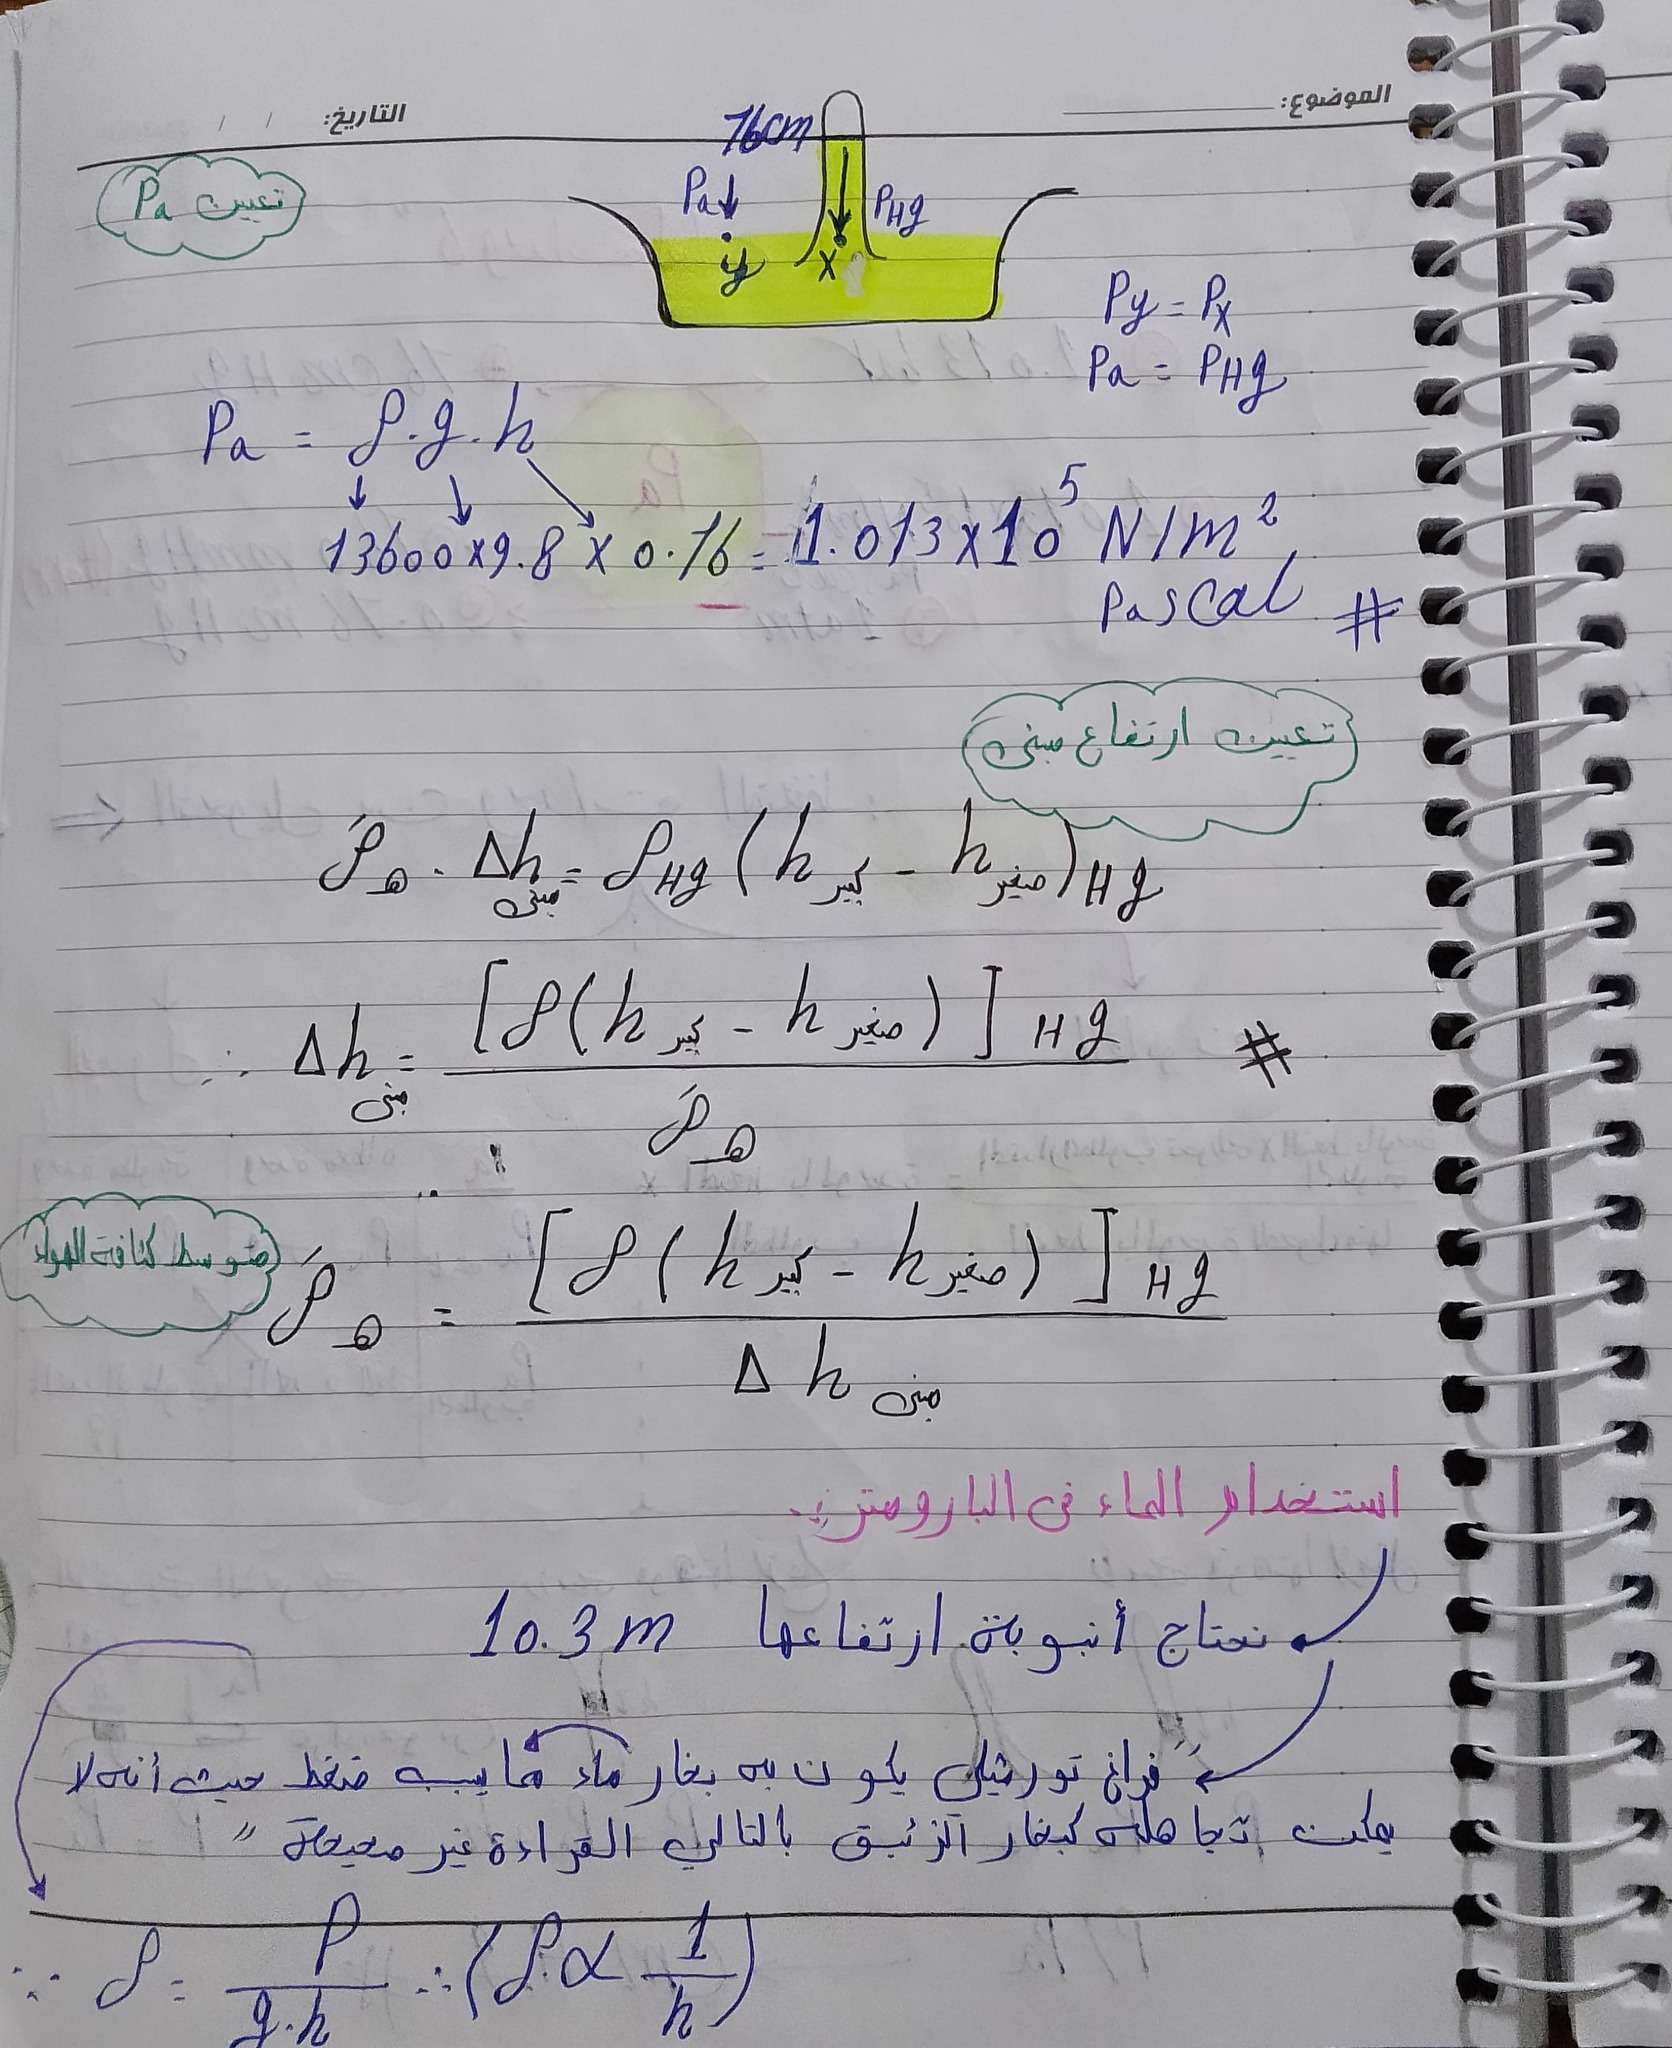 الموضوع:
التاريخ: / /
تعيين Pa
76cm
Pa
PHg
y
x
Py = Px
Pa = PHg
Pa = ρ.g.h
13600×9.8×0.76 = 1.013×10⁵ N/m²
Pascal #
تعيين ارتفاع مبنى
ρ́ھ . Δh مبنى = ρHg (h كبير - h صغير)Hg
∴ Δh مبنى = [ρ(h كبير - h صغير)]Hg / ρ́ھ #
متوسط كثافة الهواء
ρ́ھ = [ρ(h كبير - h صغير)]Hg / Δh مبنى
استخدام الماء فى البارومتر :-
نحتاج أنبوبة ارتفاعها 10.3 m
"فراغ تورشيلى يكون به بخار ماء مما يسبب ضغط حيث أنه لا
يمكن تجاهله كبخار الزئبق بالتالي القراءة غير صحيحة"
∵ ρ = P / g.h ∴ (ρ ∝ 1/h)